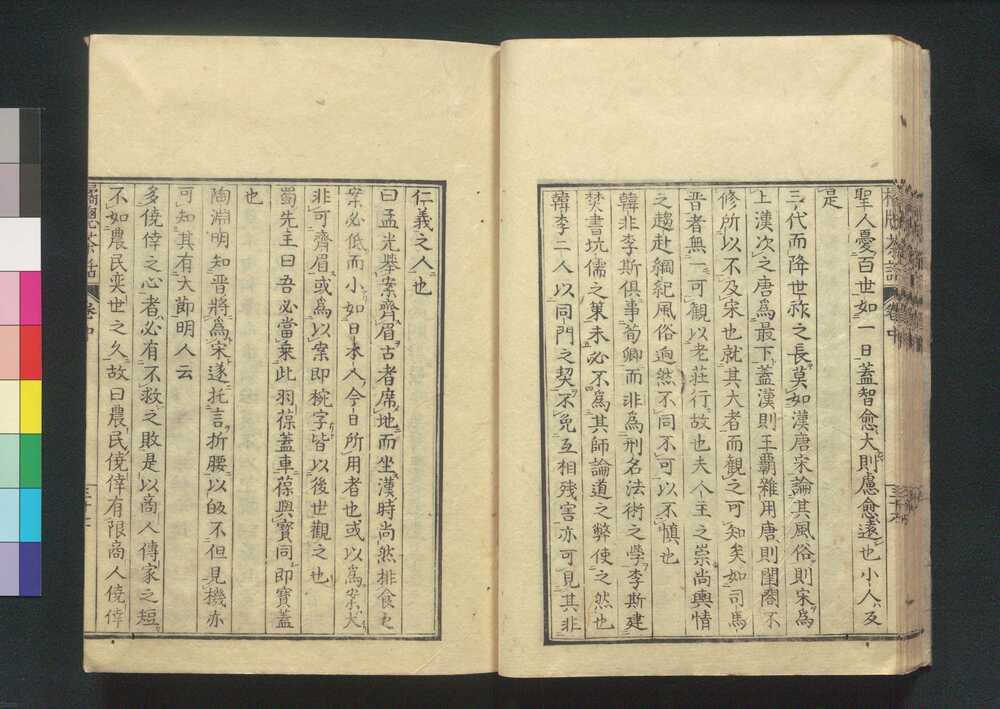 聖人憂百世如一日蓋智愈大則慮愈遠也小人反
是
三代而降世祚之長莫如漢唐宋論其風俗則宋爲
上漢次之唐爲最下蓋漢則王霸雜用唐則閨閤不
修所以不及宋也就其大者而觀之可知矣如司馬
晋者無一可觀以老莊行故也夫人主之崇尚輿情
之趨赴綱紀風俗逈然不同不可以不慎也
韓非李斯俱事荀卿而非爲刑名法術之學李斯建
焚書坑儒之菓未必不爲其師論道之弊使之然也
韓李二人以同門之契不免互相残害亦可見其非
仁義之人也
曰孟光擧案齊眉古者席地而坐漢時尚然排食之
案必低而小如日本人今日所用者也或以爲案大
非可齊眉或爲以案即椀字皆以後世觀之也
蜀先主曰吾必當乗此羽葆蓋車葆與寳同即寳蓋
也
陶淵明知晋將爲宋遂托言折腰以的不但見機亦
可知其有大節明人云
多僥倖之心者必有不救之敗是以商人傳家之短
不如農民奕世之久故曰農民僥倖有限商人僥倖
橘窓茶話 卷中